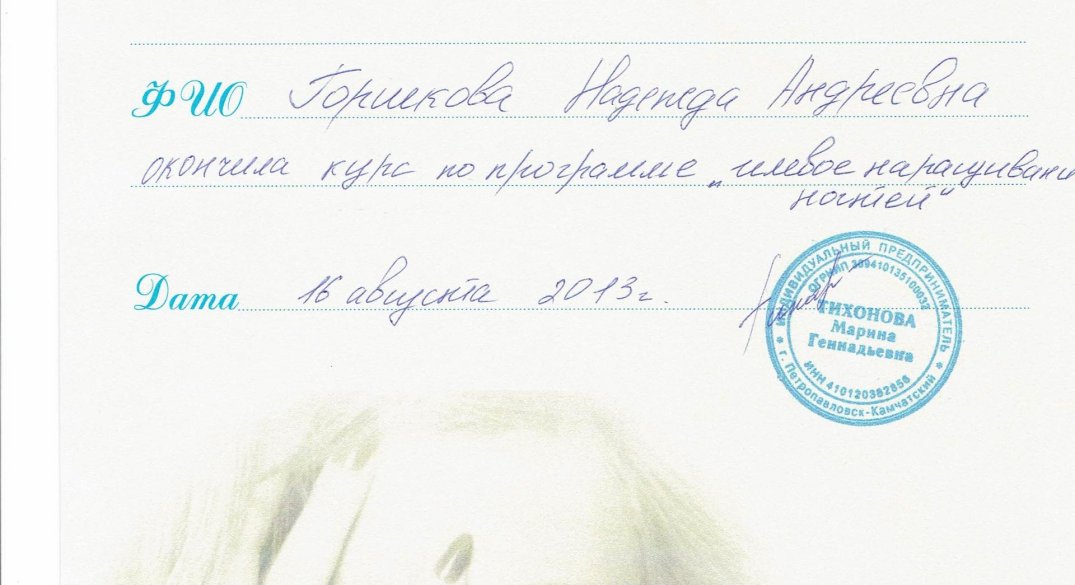 ФИО Горшкова Надежда Андреевна
окончила курс по программе „гелевое наращивани
ногтей“
Дата 16 августа 2013г.
ИНДИВИДУАЛЬНЫЙ ПРЕДПРИНИМАТЕЛЬ
ОГРНИП 309410135100032
ТИХОНОВА
Марина
Геннадьевна
ИНН 410120382856
г. Петропавловск-Камчатский